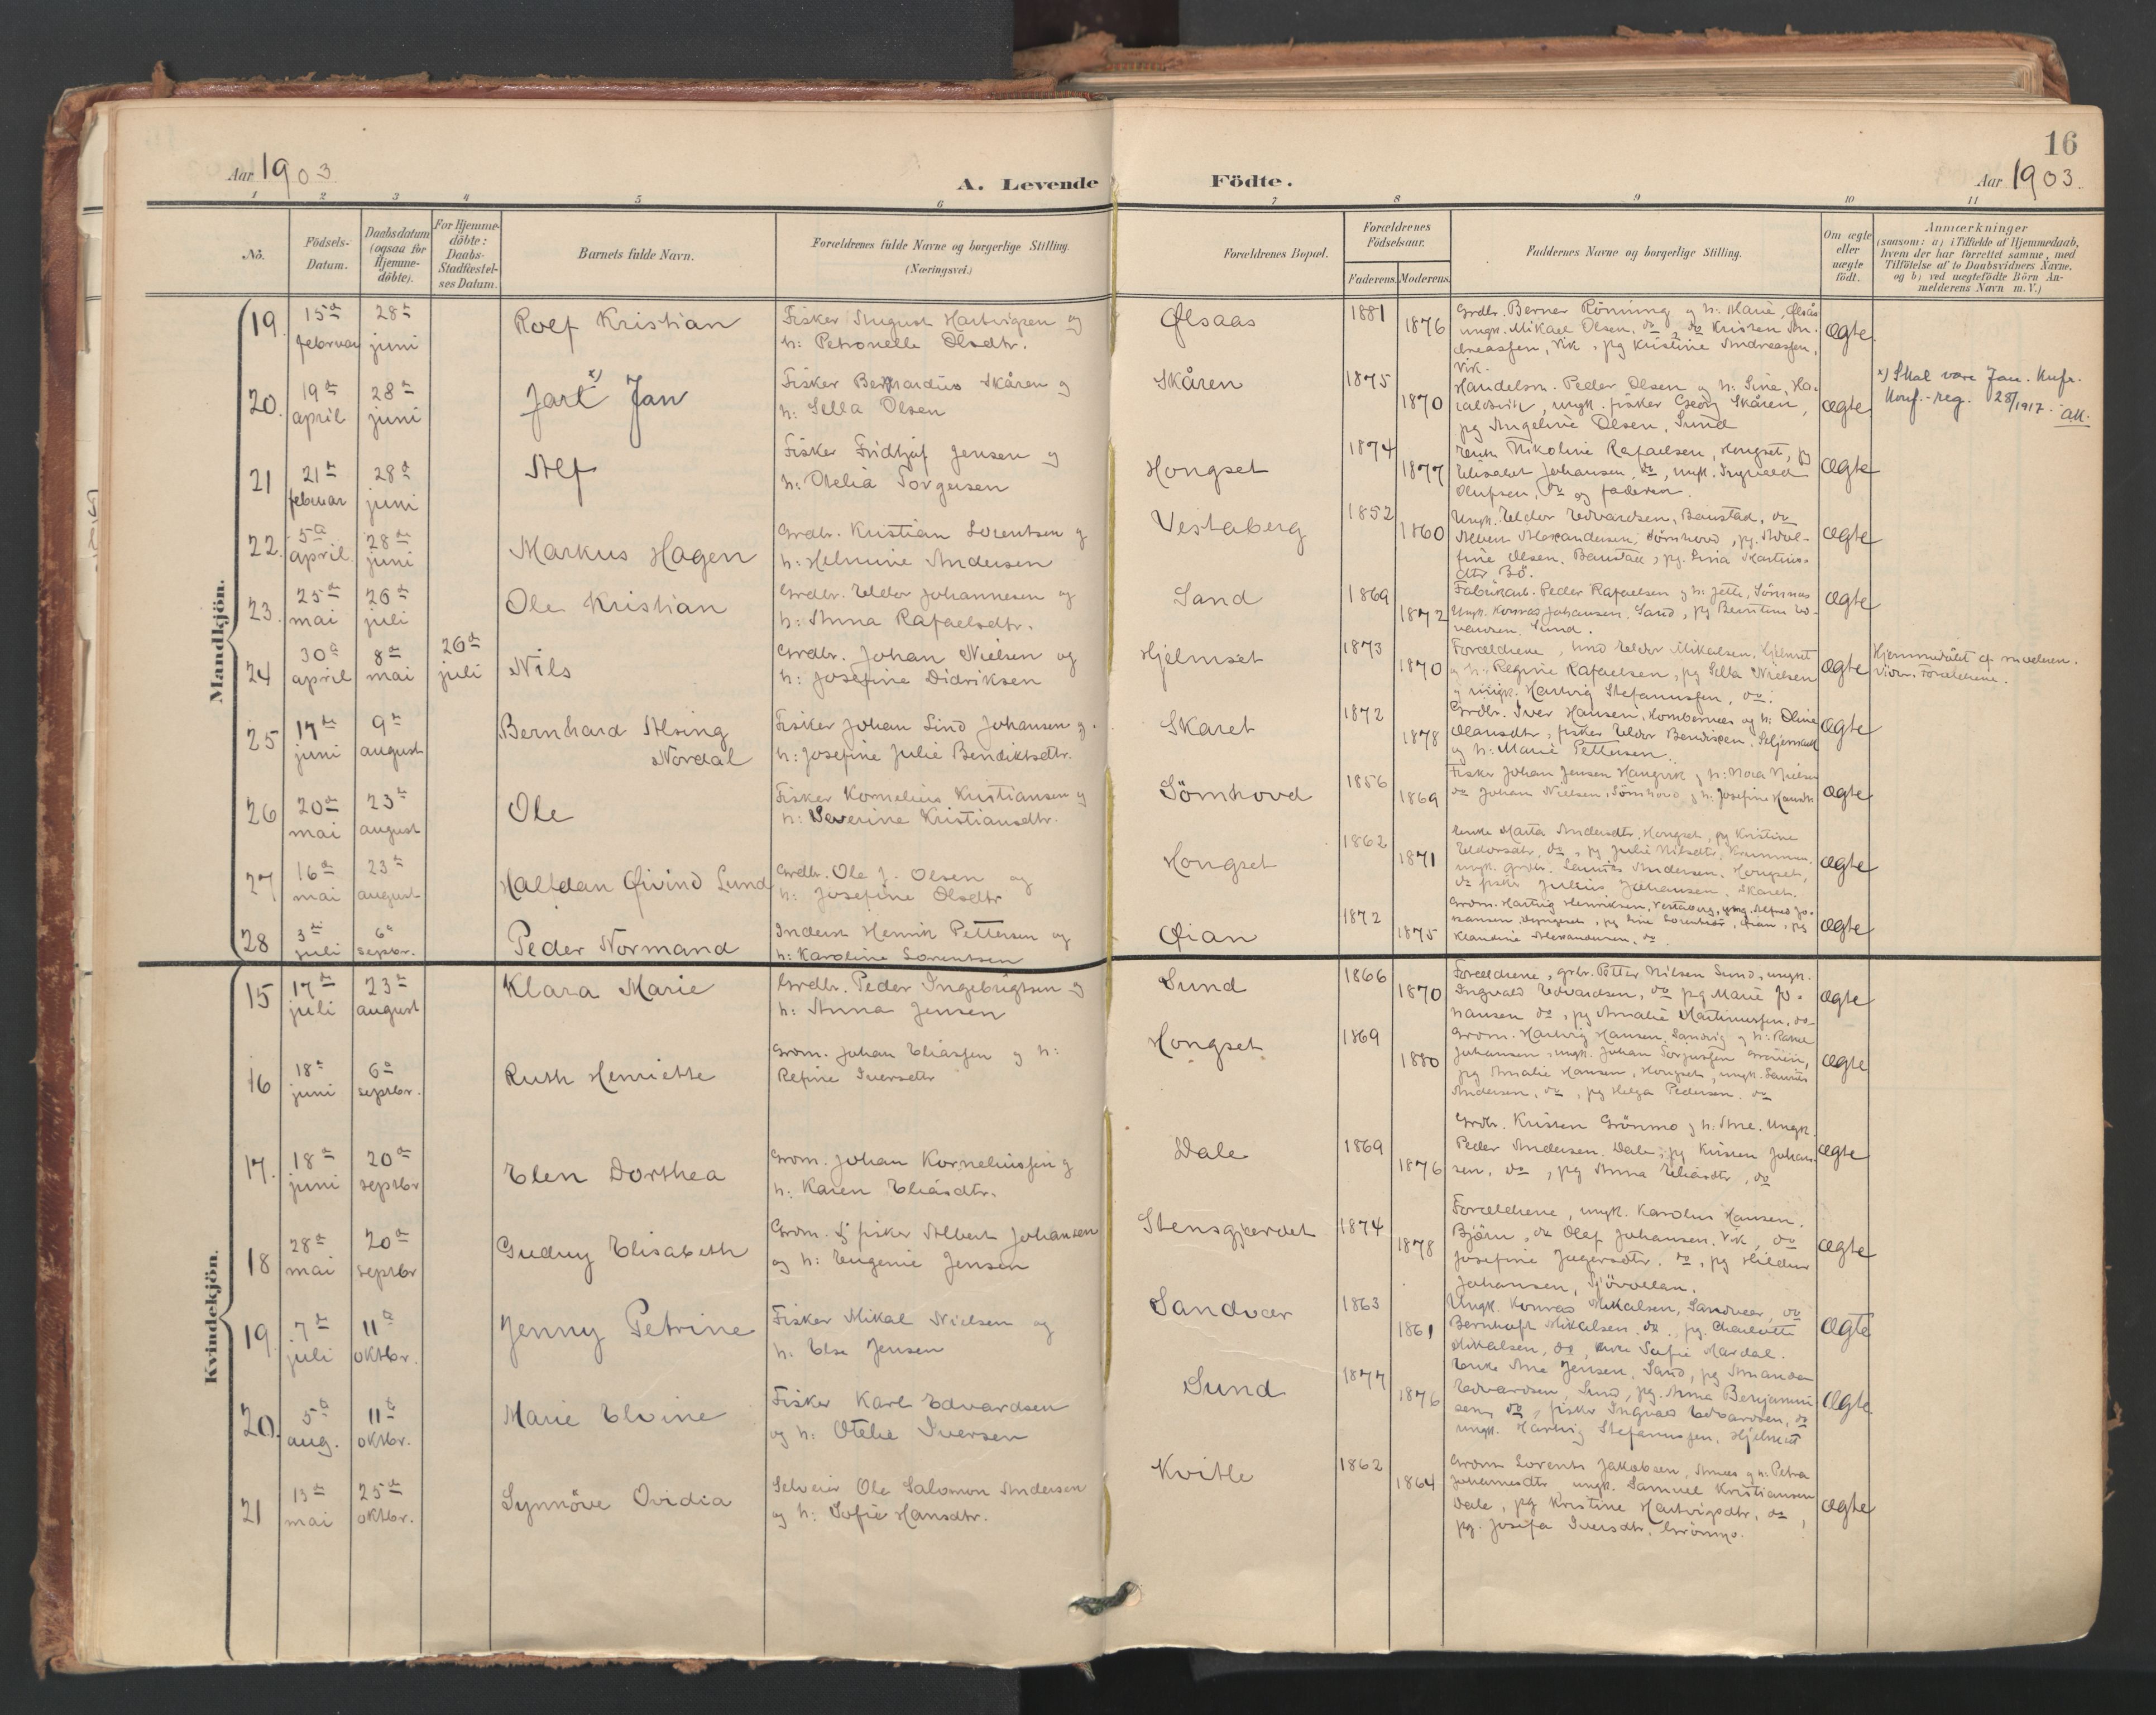 16
Aar 1903
A. Levende Födte.
Aar 1903.
1 2 3 4 5 6 7 8 9 10 11
Nö.
Födsels-
Datum.
Daabsdatum
(ogsaa for
Hjemme-
döbte).
For Hjemme-
döbte:
Daabs-
Stadfæstel-
ses Datum.
Barnets fulde Navn.
Forældrenes fulde Navne og borgerlige Stilling.
(Næringsvei.)
Forældrenes Bopæl.
Forældrenes
Födselsaar.
Faderens. Moderens.
Faddernes Navne og borgerlige Stilling.
Om ægte
eller
uægte
født.
Anmærkninger
(saasom: a) i Tilfælde af Hjemmedaab,
hvem der har forrettet samme, med
Tilföielse af to Daabsvidners Navne,
og b) ved uægtefödte Börn An-
melderens Navn m. V.)
Mandkjön.
19. 15de februar 28de juni
Rolf Kristian
Fisker August Hartvigsen og
h: Petronelle Olsdtr.
Ølsaas
1881 1876
Grdbr. Berner Rönning og h: Marie, Ølsås
ungk. Mikael Olsen, do, do Kristen An-
dreassen, Vik, pg Kristine Andreassen,
Vik.
ægte
20. 19de april 28de juni
Jarl x) Jan
Fisker Bernhardus Skåren og
h: Sella Olsen
Skåren
1875 1870
Handelsm. Peder Olsen og h: Sine,
ungk. fisker Georg Skåren,
pg Angeline Olsen, Sund
ægte
x) Skal være Jan.
Konf.-reg. 28/1917.
21 21de februar 28de juni
Alf
Fisker Fridtjof Jensen og
h: Otelia Torgersen
Hongset
1874 1877
Enke Nikoline Rafaelsen, Hongset, pg
Elisabet Johansen, do, ungk. Ingvald
Olufsen, do og faderen.
ægte
22. 5de april 28de juni
Markus Hagen
Grdbr. Kristian Lorentsen og
h: Helmine Andersen
Vestaberg
1852 1860
Ungk. Eldor Edvardsen, Baustad, do
Albert Alexandersen, Sömhovd, pg. Adol-
fine Olsen, Baustad, pg. Lina Martinus-
dtr Bö.
ægte
23. 25de mai 26de juli
Ole Kristian
Grdbr. Eldor Johannesen og
h: Anna Rafaelsdtr.
Sand
1869 1872
Fabrikarb. Peder Rafaelsen og h: Jette, Sömnes
Ungk. Konrad Johansen, Sand, pg Berntine Ed-
vardsen, Sund.
ægte
24 30de april 8de mai 26de juli
Nils
Grdbr. Johan Nielsen og
h: Josefine Didriksen
Hjelmset
1873 1870
Forældrene, Eldor Mikalsen, Hjelmset
og h: Regine Rafaelsen, pg Sella Nielsen
og ungk. Hartvig Stefanussen, do.
ægte
Hjemmedöbt af
Vidn. Forældrene.
25 17de juni 9de august
Bernhard Alsing
Nordal
Fisker Johan Lind Johansen og
h: Josefine Julie Bendiktsdtr.
Skaret
1872 1878
Grdbr. Iver Hansen, Hombornes og h: Oline
Olausdtr, fisker Eldor Bendiksen,
og h: Marie Pettersen.
ægte
26 20de mai 23de august
Ole
Fisker Kornelius Kristiansen og
h: Severine Kristiansdtr.
Sömhovd
1856 1869
Fisker Johan Jensen Hangvik og h: Nora Nielsen
do Johan Nielsen, Sömhovd og h: Josefine
ægte
27 16de mai 23de august
Halfdan Øivind Lund
Grdbr. Ole J. Olsen og
h: Josefine Olsdtr
Hongset
1862 1871
Enke Marta Andersdtr, Hongset, pg Kristine
Eldorsdtr, do, pg Julie Nilsdtr,
ungk. grdbr. Laurits Andersen, Hongset,
do fisker Julius Johansen, Skaret.
ægte
28 3de juli 6te septbr.
Peder Normand
Inderst Henrik Pettersen og
h: Karoline Lorentsen
Øian
1872 1875
Grdm. Hartvig Henriksen, Vestaberg, ungk. Alfred Jo-
hansen, pg Line Lorentsdtr, Øian, pg
Klaudine Alexandersen, do.
ægte
Kvindekjön.
15 17de juli 23de august
Klara Marie
Grdbr. Peder Ingebrigtsen og
h: Anna Jensen
Sund
1866 1870
Forældrene, grbr. Petter Nilsen Sund, ungk.
Ingvald Edvardsen, do pg Marie Jo-
hansen do, pg Amalie Martinussen, do
ægte
16 18de juni 6te septbr.
Ruth Henriette
Grdm. Johan Eliassen og h:
Refine Iversdtr
Hongset
1869 1880
Grdm. Hartvig Hansen, Sandvig og h: Rakel
Johansen, ungk. Johan Torgersen
pg Amalie Hansen, Hongset, ungk. Laurits
Andersen, do, pg Helga Pedersen, do
ægte
17. 18de juni 20de septbr
Elen Dorthea
Grdm. Johan Korneliussen og
h: Karen Eliasdtr.
Dale
1869 1876
Grdbr. Kristen Grönmo og h: Ane. Ungk.
Peder Andersen, Dale, pg Kirsten Johan-
sen, do, pg Anna Eliasdtr, do
ægte
18 28de mai 20de septbr
Gudny Elisabeth
Grdm. & fisker Albert Johansen
og h: Eugenie Jensen
Stensgjærdet
1874 1878
Forældrene, ungk. Karolus Hansen,
Björn, do Olaf Johansen, Vik, do
Josefine Jægersdtr, do, pg Hildur
Johansen, Sjövollan.
ægte
19. 7de juli 11te oktbr.
Jenny Petrine
Fisker Mikal Nielsen og
h: Else Jensen
Sandvær
1863 1861
Ungk. Konrad Mikalsen, Sandvær, do
Bernhoft Mikalsen, do, pg. Charlotte
Mikalsen, do, enke Sofie Mardal.
ægte
20. 5te aug. 11te oktbr.
Marie Elvine
Fisker Karl Edvardsen
og h: Otelie Iversen
Sund
1877 1876
Enke Ane Jensen, Sand, pg Amanda
Edvardsen, Sund, pg. Anna Benjamin-
sen, do, fisker Ingvald Edvardsen, do
ungk. Hartvig Stefanussen, Hjelmset
ægte
21 13de mai 25de oktbr.
Synnöve Ovidia
Selveier Ole Salomon Andersen
og h: Sofie Hansdtr.
Kvitle
1862 1864
Grdm Lorents Jakobsen, og h: Petra
Johannesdtr, ungk. Samuel Kristiansen
Dale, pg Kristine Hartvigsdtr, do,
pg. Josefa Iversdtr, Grönmo.
ægte